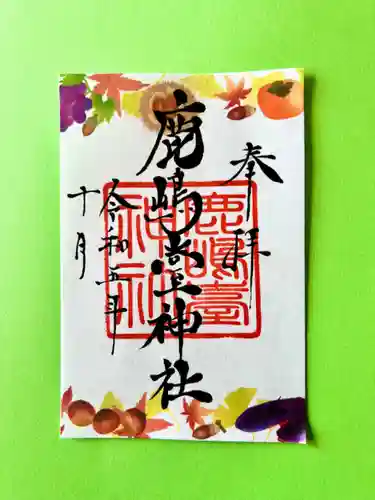 奉拝
鹿嶋台神社
鹿嶋臺
神社
令和五年
十月